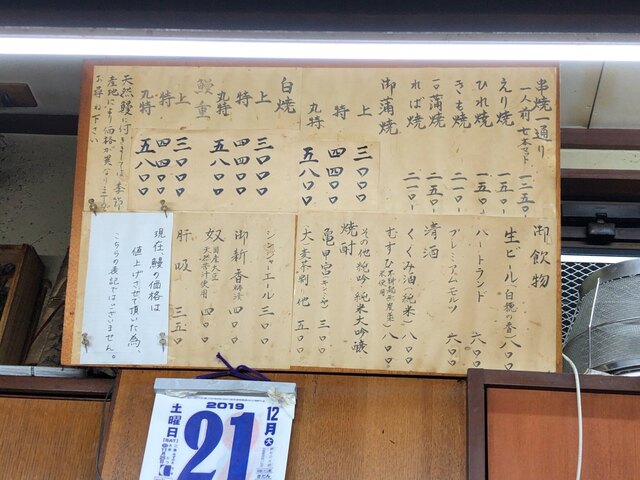 串焼一通り
一人前 七本セット 一二五〇
えり焼 一五〇
ひれ焼 一五〇
きも焼 二一〇
一口蒲焼 二五〇
れば焼 二一〇
御蒲焼
上 三〇〇〇
特 四四〇〇
丸特 五八〇〇
白焼
上 三〇〇〇
特 四四〇〇
丸特 五八〇〇
鰻重
上 三〇〇〇
特 四四〇〇
丸特 五八〇〇
天然鰻に付きましては 季節
産地により価格が異なります
お尋ね下さい
御飲物
生ビール(白穂乃香) 八〇〇
ハートランド 六〇〇
プレミアムモルツ 六〇〇
清酒
くくみ酒(純米) 八〇〇
むすひ 八〇〇
その他 純吟・純米大吟醸
焼酎
亀甲宮(キンミヤ) 三〇〇
大麦 茶割り 他 五〇〇
ジンジャーエール 三〇〇
御新香 四〇〇
奴 国産大豆 天然苦汁使用 四〇〇
肝吸 三五〇
現在 鰻の価格は
値上げさせて頂いた為
こちらの表記ではございません。
2019
12月 大
21
土曜日